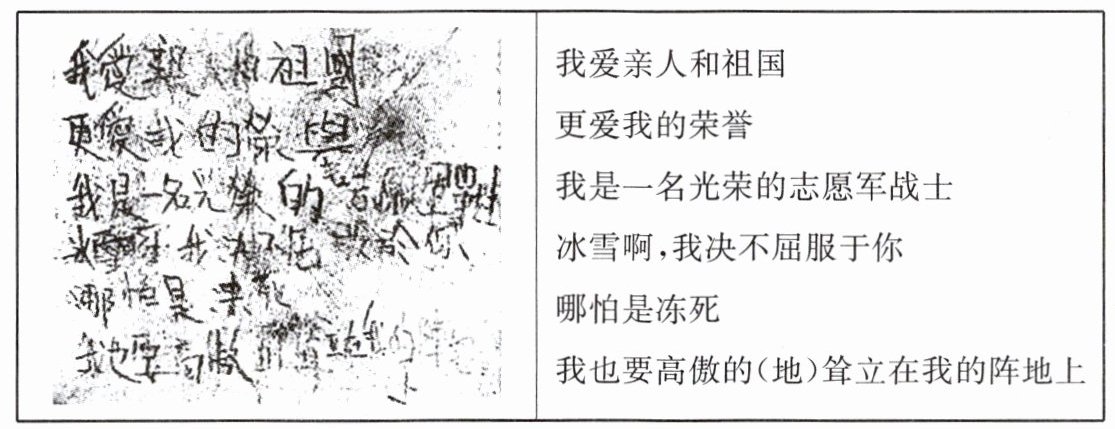 我愛親 和祖國
更愛我的榮與
我是一名光榮的志愿
我決不屈 於你
哪怕是凍死
我也要高傲 的
我爱亲人和祖国
更爱我的荣誉
我是一名光荣的志愿军战士
冰雪啊,我决不屈服于你
哪怕是冻死
我也要高傲的(地)耸立在我的阵地上